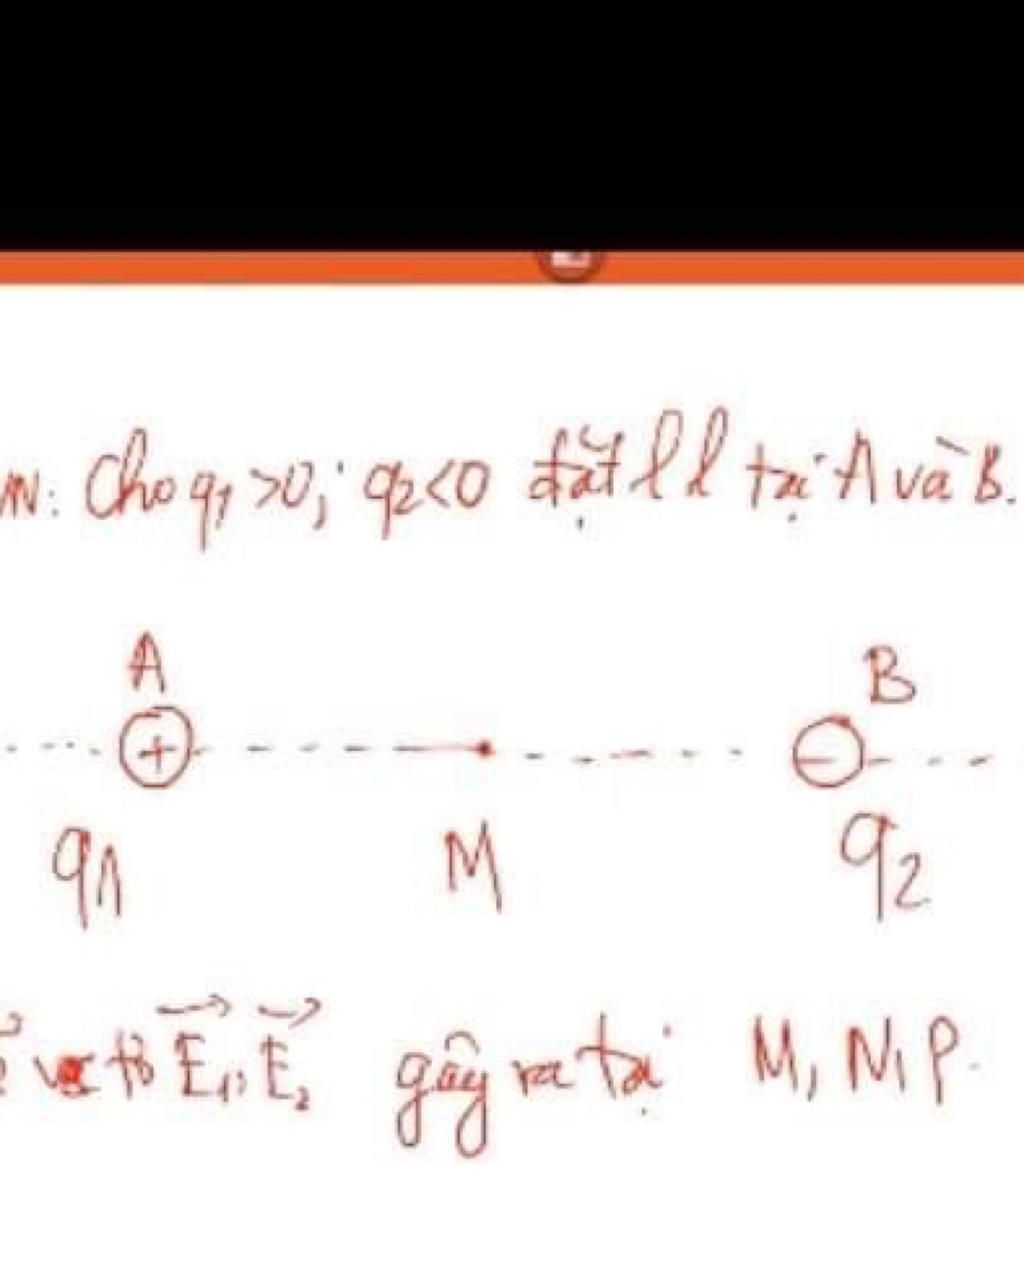 Cho q1 >0; q2<0 đặt l l tại A và B.
A B
+ −
q1 M q2
vectơ E1; E2 gây ra tại M, N, P.